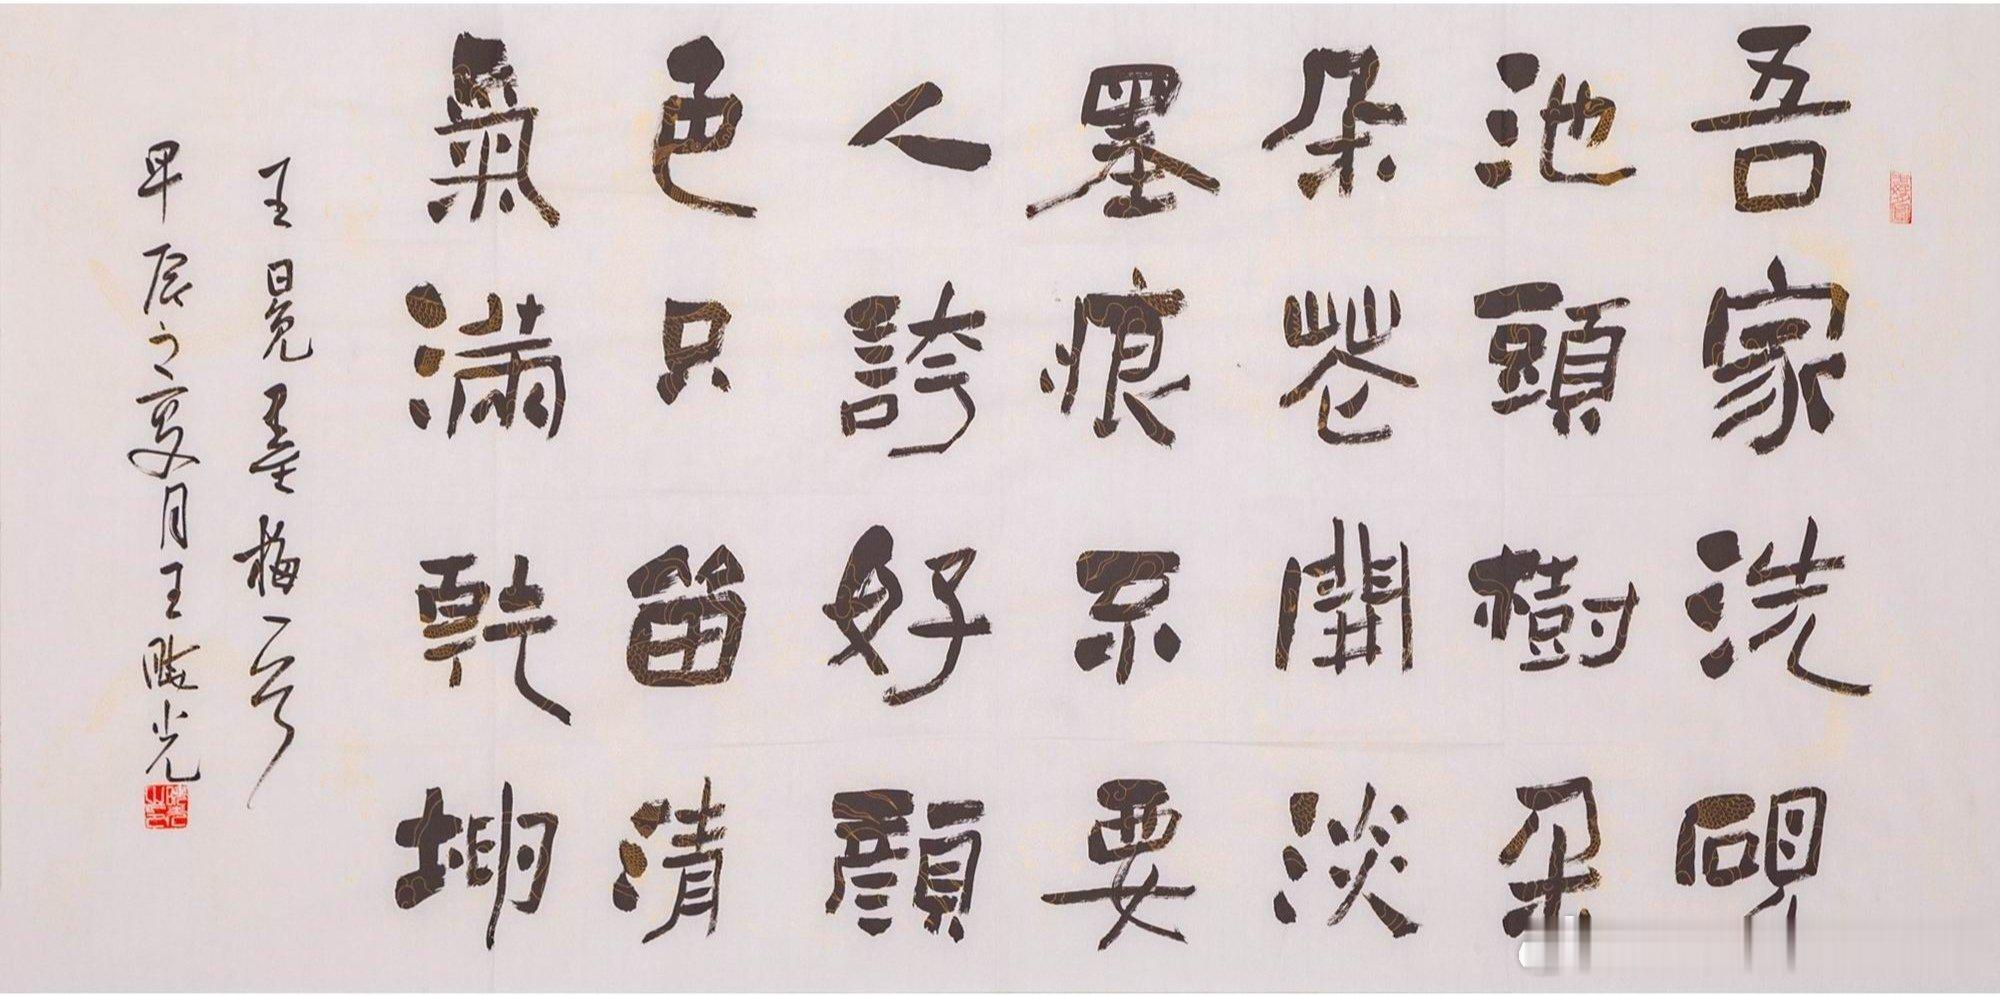 吾家洗硯
池頭樹朵
朵花開淡
墨痕不要
人誇好顔
色只留清
氣滿乾坤
王冕墨梅一首
甲辰之夏月王光